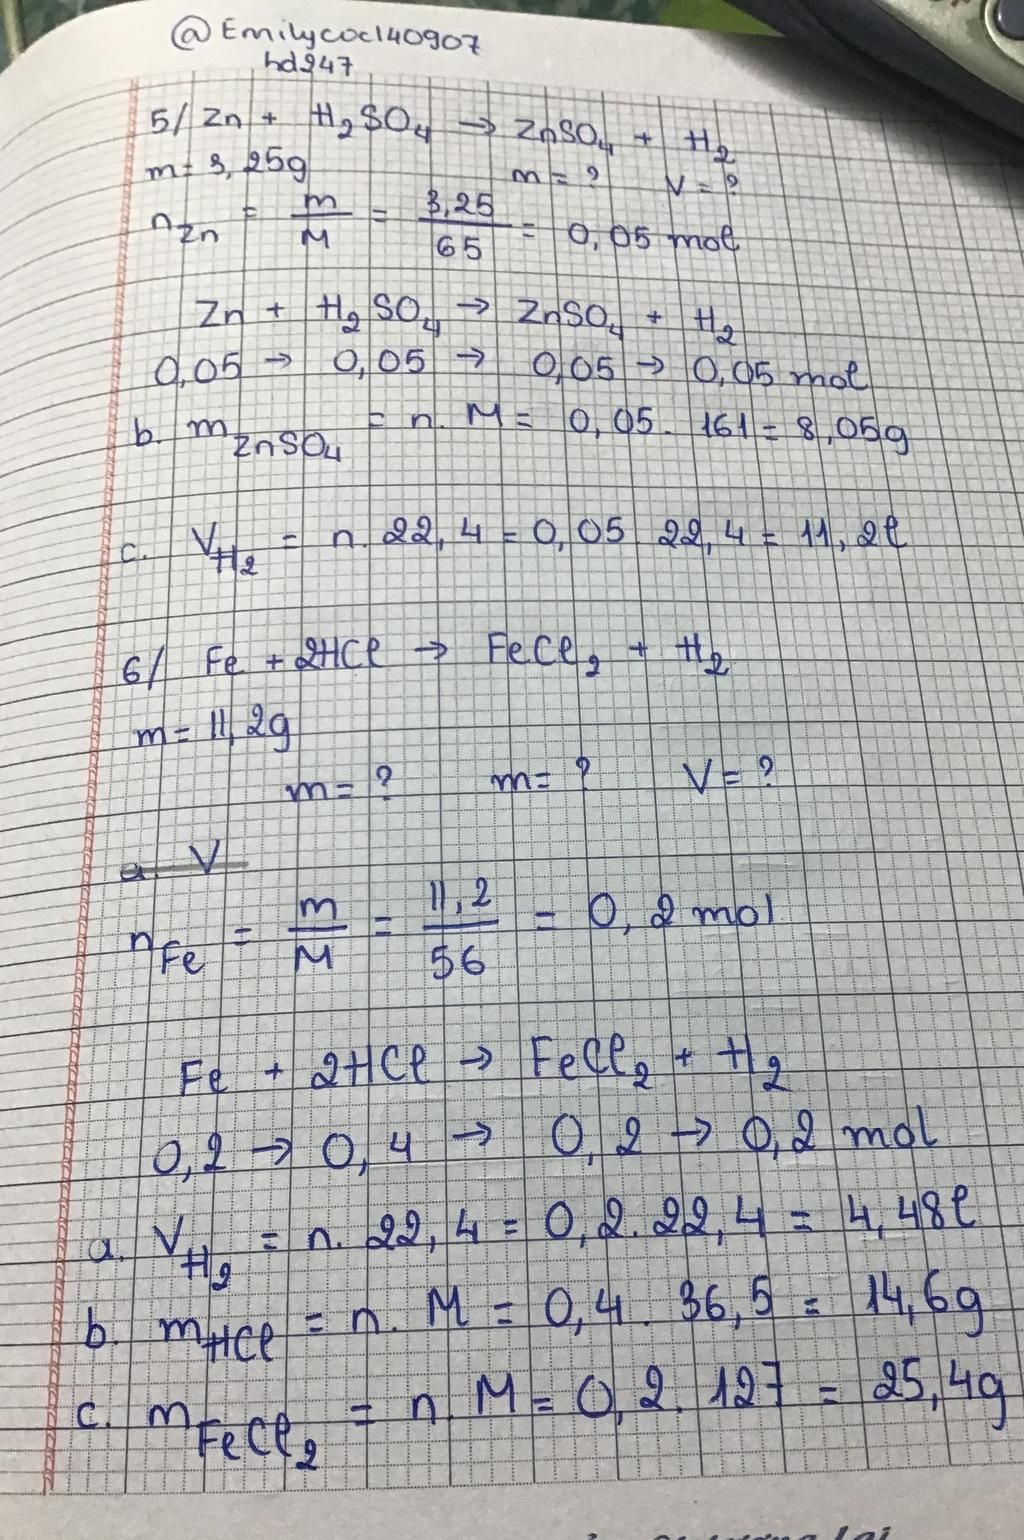 @Emilycocl40907
hd247
5/ Zn + H₂SO₄ → ZnSO₄ + H₂
m= 3,25g m= ? V= ?
n_Zn = m/M = 3,25/65 = 0,05 mol
Zn + H₂SO₄ → ZnSO₄ + H₂
0,05 → 0,05 → 0,05 → 0,05 mol
b. m_ZnSO₄ = n. M = 0,05. 161 = 8,05g
c. V_H₂ = n. 22,4 = 0,05. 22,4 = 11,2l
6/ Fe + 2HCl → FeCl₂ + H₂
m= 11,2g
m= ? m= ? V= ?
a. V
n_Fe = m/M = 11,2/56 = 0,2 mol
Fe + 2HCl → FeCl₂ + H₂
0,2 → 0,4 → 0,2 → 0,2 mol
a. V_H₂ = n. 22,4 = 0,2. 22,4 = 4,48l
b. m_HCl = n. M = 0,4. 36,5 = 14,6g
c. m_FeCl₂ = n. M = 0,2. 127 = 25,4g